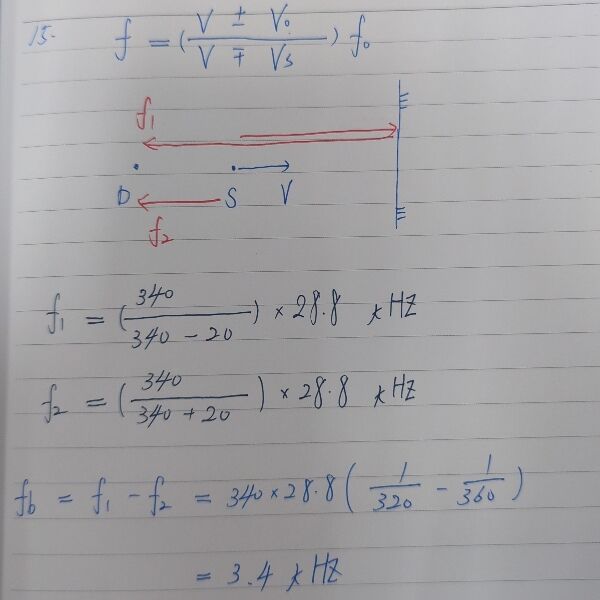 15. f = (V ± V₀ / V ∓ Vs) f₀
f₁
D S V
f₂
f₁ = (340 / 340 - 20) × 28.8 kHz
f₂ = (340 / 340 + 20) × 28.8 kHz
fb = f₁ - f₂ = 340 × 28.8 (1/320 - 1/360)
= 3.4 kHz